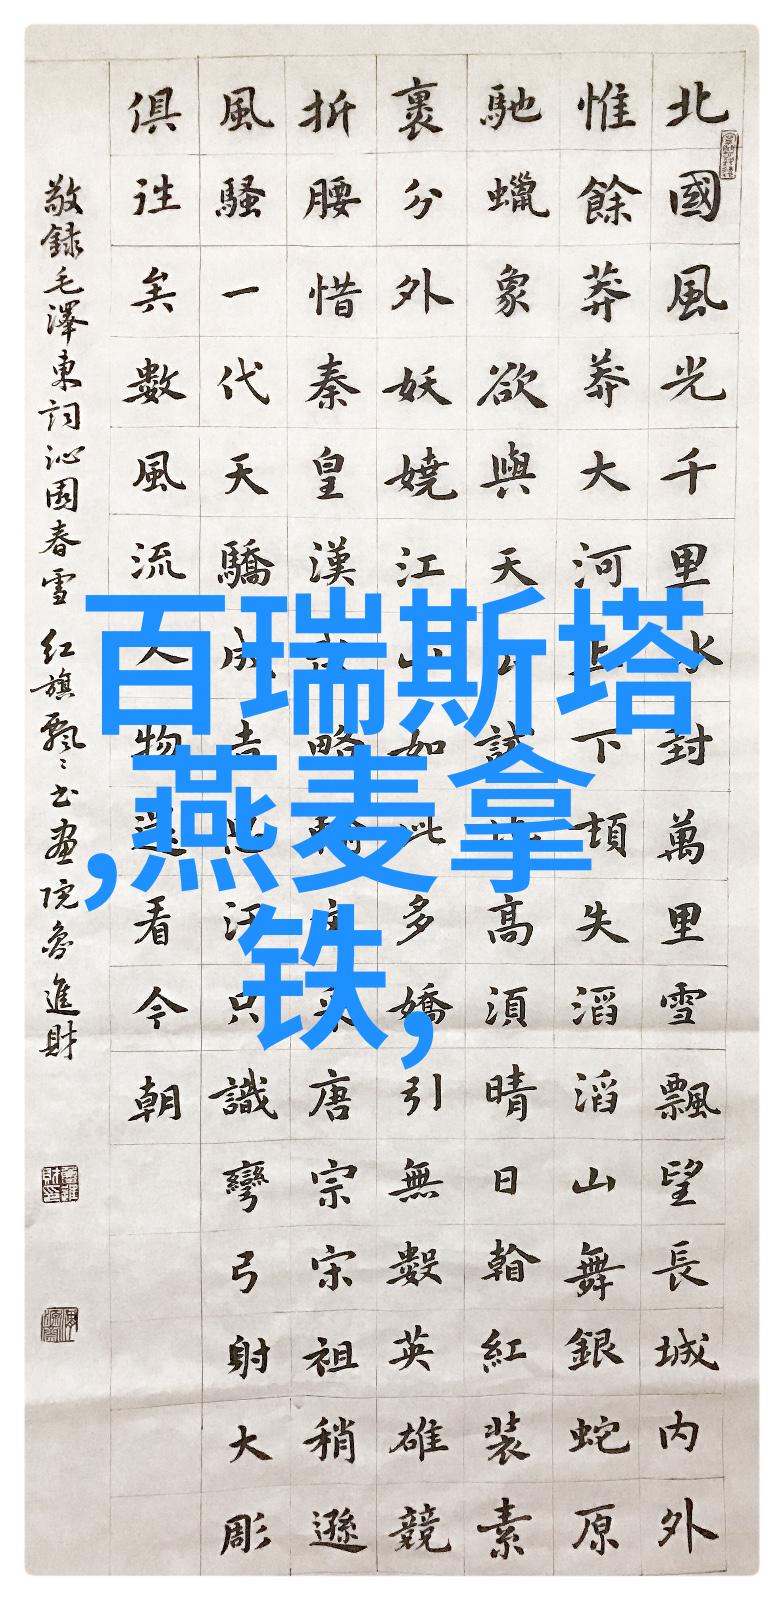 北國風光千里冰封萬里雪飄望長城内外
惟餘莽莽大河上下頓失滔滔山舞銀蛇原
馳蠟象欲與天公試比高須晴日看紅裝素
裹分外妖嬈江山如此多嬌引無數英雄競
折腰惜秦皇漢武略輸文采唐宗宋祖稍遜
風騷一代天驕成吉思汗只識彎弓射大彫
俱往矣數風流人物還看今朝
敬録毛澤東詞沁園春雪 红旗飄〻书画院魯進財
百瑞斯塔
,燕麦拿
铁,